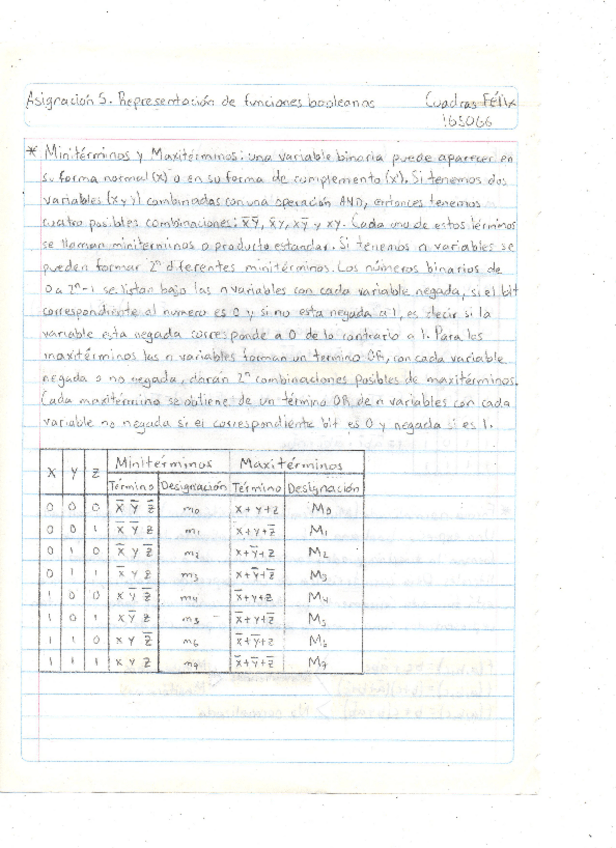 Asignación 5. Representación de funciones booleanas Cuadras Félix
165066
* Minitérminos y Maxitérminos: una variable binaria puede aparecer en
su forma normal (x) o en su forma de complemento (x'). Si tenemos dos
variables (x y y) combinadas con una operación AND, entonces tenemos
cuatro posibles combinaciones: x̅y̅, x̅y, xy̅ y xy. Cada uno de estos términos
se llaman miniterminos o producto estandar. Si tenemos n variables se
pueden formar 2ⁿ diferentes minitérminos. Los números binarios de
0 a 2ⁿ-1 se listan bajo las n variables con cada variable negada, si el bit
correspondiente al numero es 0 y si no esta negada a 1, es decir si la
variable esta negada corresponde a 0 de lo contrario a 1. Para los
maxitérminos las n variables forman un termino OR, con cada variable
negada o no negada, darán 2ⁿ combinaciones posibles de maxitérminos.
Cada maxitérmino se obtiene de un término OR de n variables con cada
variable no negada si el correspondiente bit es 0 y negada si es 1.
X Y Z Minitérminos Maxitérminos
Término Designación Término Designación
0 0 0 x̅ y̅ z̅ m0 x+y+z M0
0 0 1 x̅ y̅ z m1 x+y+z̅ M1
0 1 0 x̅ y z̅ m2 x+y̅+z M2
0 1 1 x̅ y z m3 x+y̅+z̅ M3
1 0 0 x y̅ z̅ m4 x̅+y+z M4
1 0 1 x y̅ z m5 x̅+y+z̅ M5
1 1 0 x y z̅ m6 x̅+y̅+z M6
1 1 1 x y z x̅+y̅+z̅